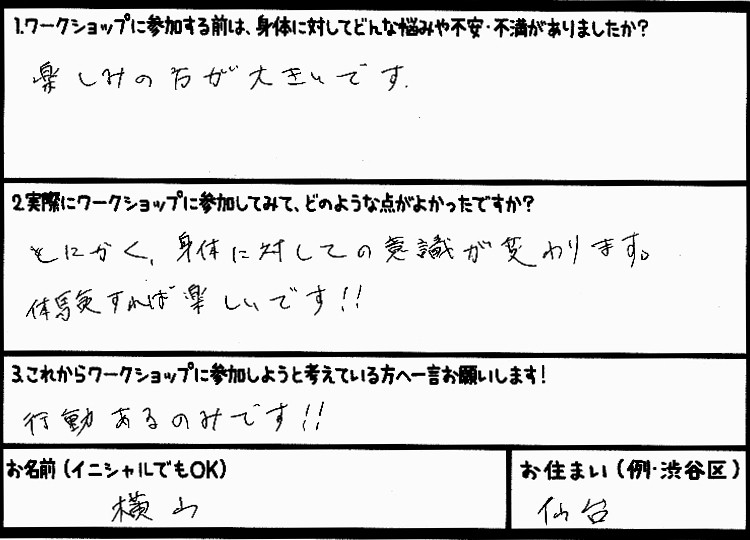 1.ワークショップに参加する前は、身体に対してどんな悩みや不安・不満がありましたか?
楽しみの方が大きいです.
2.実際にワークショップに参加してみて、どのような点がよかったですか?
とにかく、身体に対しての意識が変わります。
体験すれば楽しいです!!
3.これからワークショップに参加しようと考えている方へ一言お願いします!
行動あるのみです!!
お名前(イニシャルでもOK)
横山
お住まい(例・渋谷区)
仙台